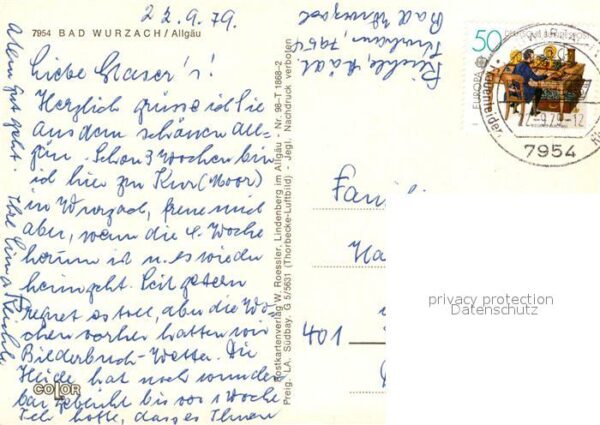 22.9.79.
7954 BAD WURZACH/Allgäu
Liebe Glaser's!
Herzlich grüsse ich Sie
aus dem schönen All-
gäu. Schon 3 Wochen bin
ich hier zur Kur (Moor)
in Wurzach, freue mich
aber, wenn die 4. Woche
herum ist u. es wieder
heimgeht. Seit gestern
regnet es toll, aber die Wo-
chen vorher hatten wir
Bilderbuch-Wetter. Die
Heide hat noch wunder
bar geblüht bis vor 1 Woche
Ich hoffe, dass es Ihnen
allen gut geht.
Ihre
COLOR
Postkartenverlag W. Roessler, Lindenberg im Allgäu - Nr. 98-T 1868-2
Freig. LA. Südbay. G 5/5631 (Thorbecke-Luftbild) - Jegl. Nachdruck verboten
7954
Bad Wurzach
50
EUROPA
7954
Fam
Ha
401
privacy protection
Datenschutz